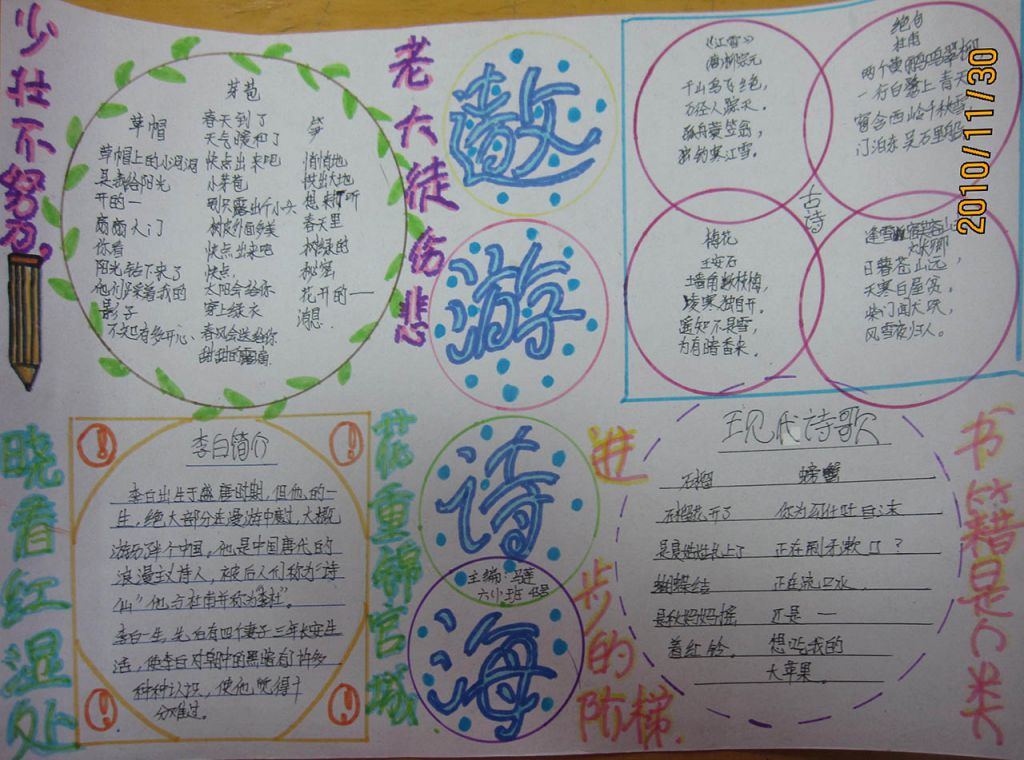 少壮不努力，
老大徒伤悲
遨
游
诗
海
主编：
草帽
草帽上的小
阳光
开的一
你看
阳光钻下来了
他们踩着我的
影子
不知有多开心
芽苞
春天到了
天气暖和了
快点出来吧
小芽苞
别只露出个小头
树皮外面多美
快点出来吧
快点
太阳会给你
穿上绿衣
春风会送给你
甜甜的
笋
悄悄地
拱出大地
想来听听
春天里
树绿的
秘密
花开的一
消息
古诗
《江雪》
千山鸟飞绝，
万径人踪灭。
孤舟蓑笠翁，
独钓寒江雪。
绝句
杜甫
两个黄鹂鸣翠柳
一行白鹭上青天
窗含西岭千秋雪
门泊东吴万里船
梅花
王安石
墙角数枝梅，
凌寒独自开。
遥知不是雪，
为有暗香来。
逢雪宿芙蓉山
日暮苍山远，
天寒白屋贫。
柴门闻犬吠，
风雪夜归人。
2010/11/30
晓看红湿处
花重锦官城
李白简介
李白出生于盛唐时期，但他的一
生，绝大部分在漫游中度过，大概
游历了半个中国，他是中国唐代的
浪漫主义诗人，被后人们称为“诗
仙”他与杜甫并称为“李杜”。
李白一生，先后有四个妻子三年长安生
活，使李白对朝中的黑暗有了许多
种种认识，使他觉得十
分难过。
现代诗歌
石榴
石榴花开了
是
蝴蝶结
是秋妈妈摇
着红铃。
螃蟹
你为何吐白沫
正在刷牙漱口？
正在流口水
还是一
想吃我的
大苹果。
书籍是人类
进步的阶梯.